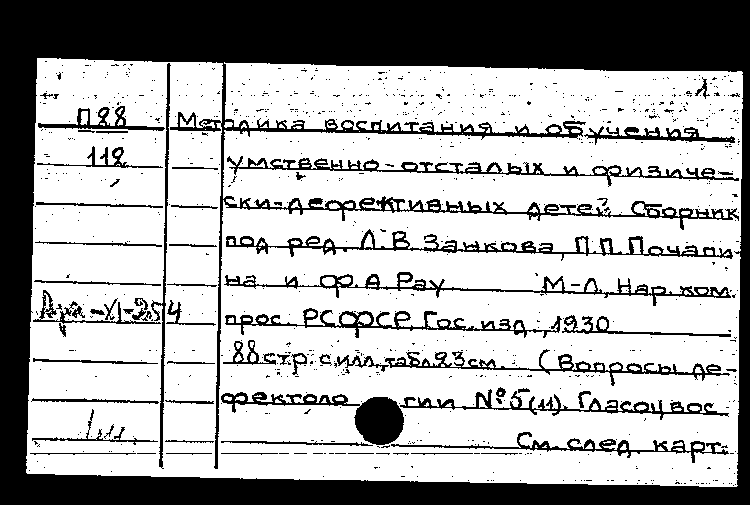 1
П28 Методика воспитания и обучения
112 умственно-отсталых и физиче-
ски-дефективных детей. Сборник
под ред. Л.В. Занкова, П.П. Почапи-
на и Ф.А. Рау М-Л., Нар. ком.
прос. РСФСР, Гос. изд., 1930
88 стр. с илл., табл. 23 см. (Вопросы де-
фектологии. №5(11). Гласоцвос
См. след. карт.
Арх-XI-254
1 ш.